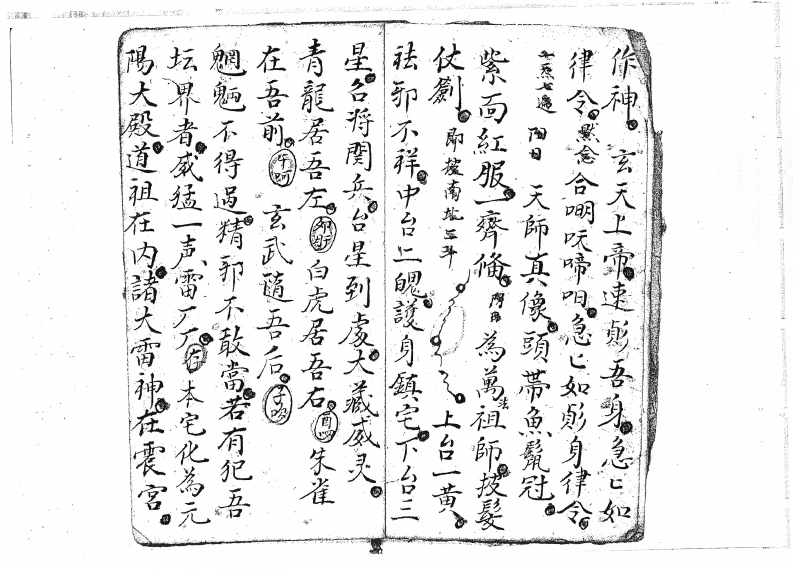 作神玄天上帝速彫吾身急匕如
律令黙念合嘲呪啼呾急匕如彫身律令
七炁七遍 陽日 天師真像頭帶魚鬣冠
紫面紅服一齊俻 陽日 為萬法祖師披髮
仗劍 即發南北三斗 上台一黄
祛邪不祥中台二魄護身鎮宅下台三
星名将関兵台星到處大藏威灵
青龍居吾左卯 白虎居吾右酉 朱雀
在吾前午 玄武随吾后子
魍魎不得過精邪不敢當若有犯吾
坛界者威猛一声雷厂厂 本宅化為元
陽大殿道祖在内諸大雷神在震宮